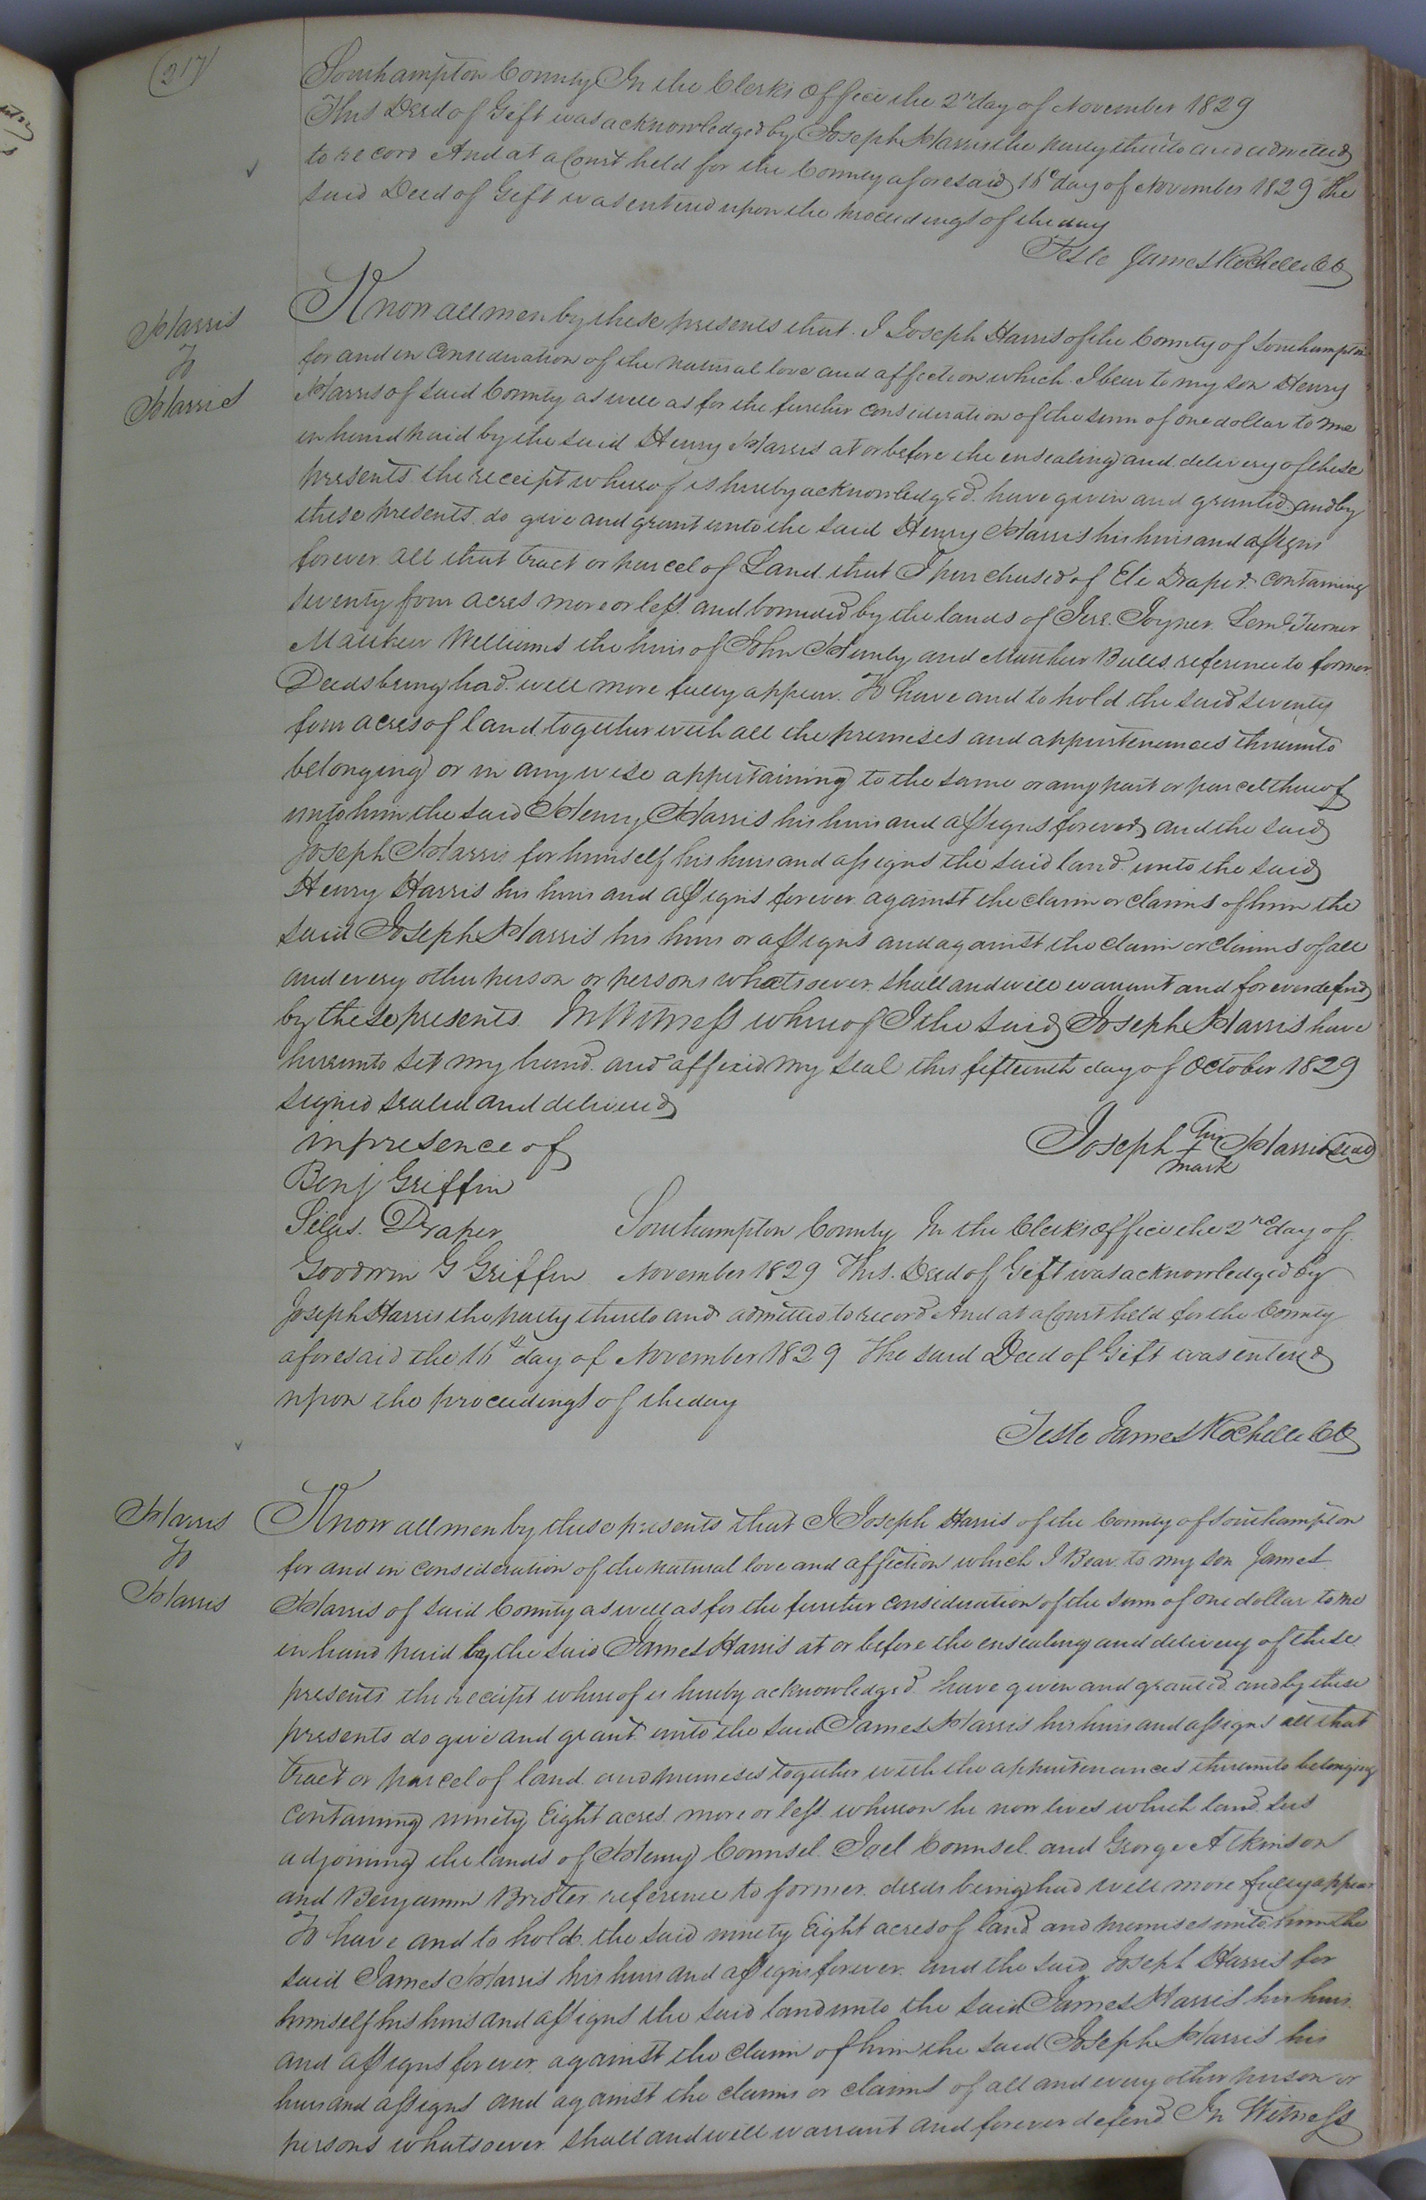 217
Southampton County In the Clerks Office the 2nd day of November 1829
This Deed of Gift was acknowledged by Joseph Harris the party thereto and admitted
to record And at a Court held for the County aforesaid 16th day of November 1829 The
said Deed of Gift was entered upon the proceedings of the day
Teste James Rochelle CC
Harris
To
Harris
Know all men by these presents that I Joseph Harris of the County of Southampton
for and in consideration of the natural love and affection which I bear to my son Henry
Harris of said County as well as for the further consideration of the sum of one dollar to me
in hand paid by the said Henry Harris at or before the ensealing and delivery of these
presents the receipt whereof is hereby acknowledged have given and granted and by
these presents do give and grant unto the said Henry Harris his heirs and assigns
forever all that tract or parcel of Land that I purchased of Eli Draper containing
seventy four acres more or less and bounded by the lands of Jese. Joyner Leml Turner
Matthew Williams the heirs of John and Matthew Bulls reference to former
Deeds being had will more fully appear To have and to hold the said seventy
four acres of land together with all the premises and appurtenances thereunto
belonging or in any wise appertaining to the same or any part or parcel thereof
unto him the said Henry Harris his heirs and assigns forever and the said
Joseph Harris for himself his heirs and assigns the said land unto the said
Henry Harris his heirs and assigns forever against the claim or claims of him the
said Joseph Harris his heirs or assigns and against the claim or claims of all
and every other person or persons whatsoever shall and will warrant and forever defend
by these presents In Witness whereof I the said Joseph Harris have
hereunto set my hand and affixed my seal this fifteenth day of October 1829
signed sealed and delivered
in presence of
Joseph his + mark Harris seal
Benj Griffin
Silas. Draper
Goodwin G Griffin
Southampton County In the Clerks office the 2nd day of
November 1829 This Deed of Gift was acknowledged by
Joseph Harris the party thereto and admitted to record And at a Court held for the County
aforesaid the 16th day of November 1829 The said Deed of Gift was entered
upon the proceedings of the day
Teste James Rochelle CC
Harris
To
Harris
Know all men by these presents that I Joseph Harris of the County of Southampton
for and in consideration of the natural love and affection which I Bear to my son James
Harris of said County as well as for the further consideration of the sum of one dollar to me
in hand paid by the said James Harris at or before the ensealing and delivery of these
presents the receipt whereof is hereby acknowledged have given and granted and by these
presents do give and grant unto the said James Harris his heirs and assigns all that
tract or parcel of land and premises together with the appurtenances thereunto belonging
containing ninety Eight acres more or less whereon he now lives which land lies
adjoining the lands of Henry Counsel Joel Counsel and George Atkinson
and Benjamin Brister reference to former deeds being had will more fully appear
To have and to hold the said ninety Eight acres of land and premises unto him the
said James Harris his heirs and assigns forever and the said Joseph Harris for
himself his heirs and assigns the said land unto the said James Harris his heirs
and assigns forever against the claim of him the said Joseph Harris his
heirs and assigns and against the claims or claims of all and every other person or
persons whatsoever shall and will warrant and forever defend In Witness